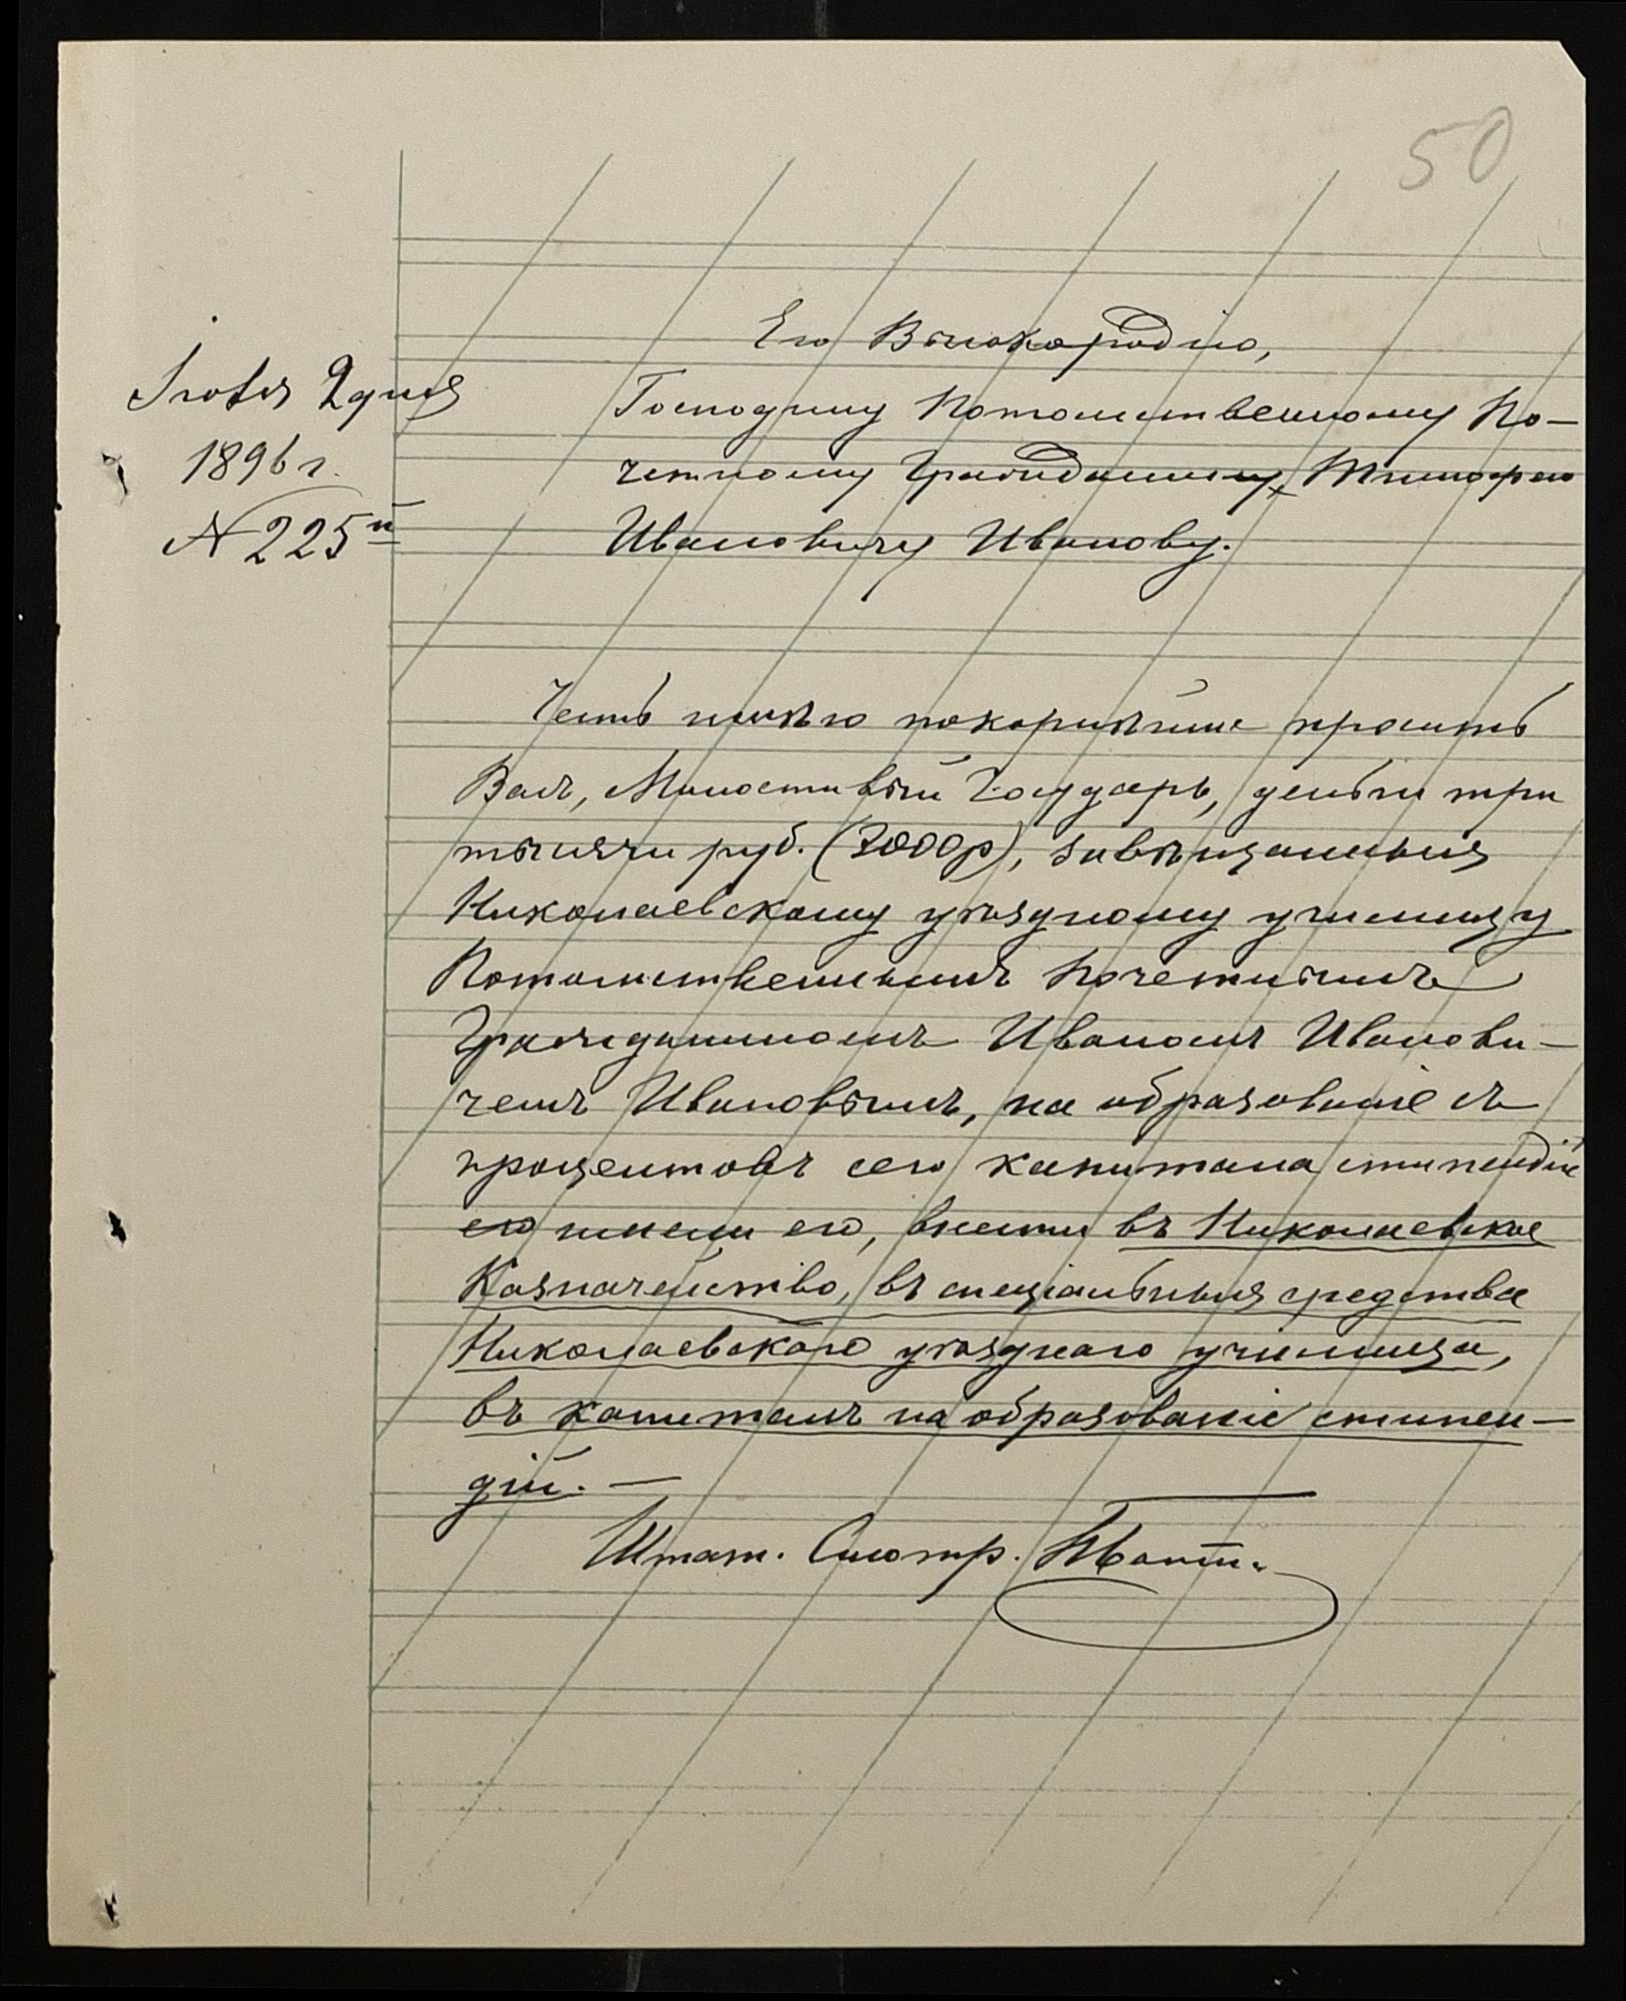 50
Его Высокородію,
Іюля 2 дня
1896 г.
№ 225й
Господину Потомственному По-
четному Гражданину Тимофею
Ивановичу Иванову.
Честь имѣю покорнѣйше просить
Васъ, Милостивый Государь, деньги три
тысячи руб. (3000р), завѣщанныя
Николаевскому уѣздному училищу
Потомственнымъ Почетнымъ
Гражданиномъ Иваномъ Иванови-
чемъ Ивановымъ, на образованіе съ
процентовъ сего капитала стипендіи
его имени его, внести въ Николаевское
Казначейство, въ спеціальныя средства
Николаевскаго уѣзднаго училища,
въ капиталъ на образованіе стипен-
дій. —
Штат. Смотр.